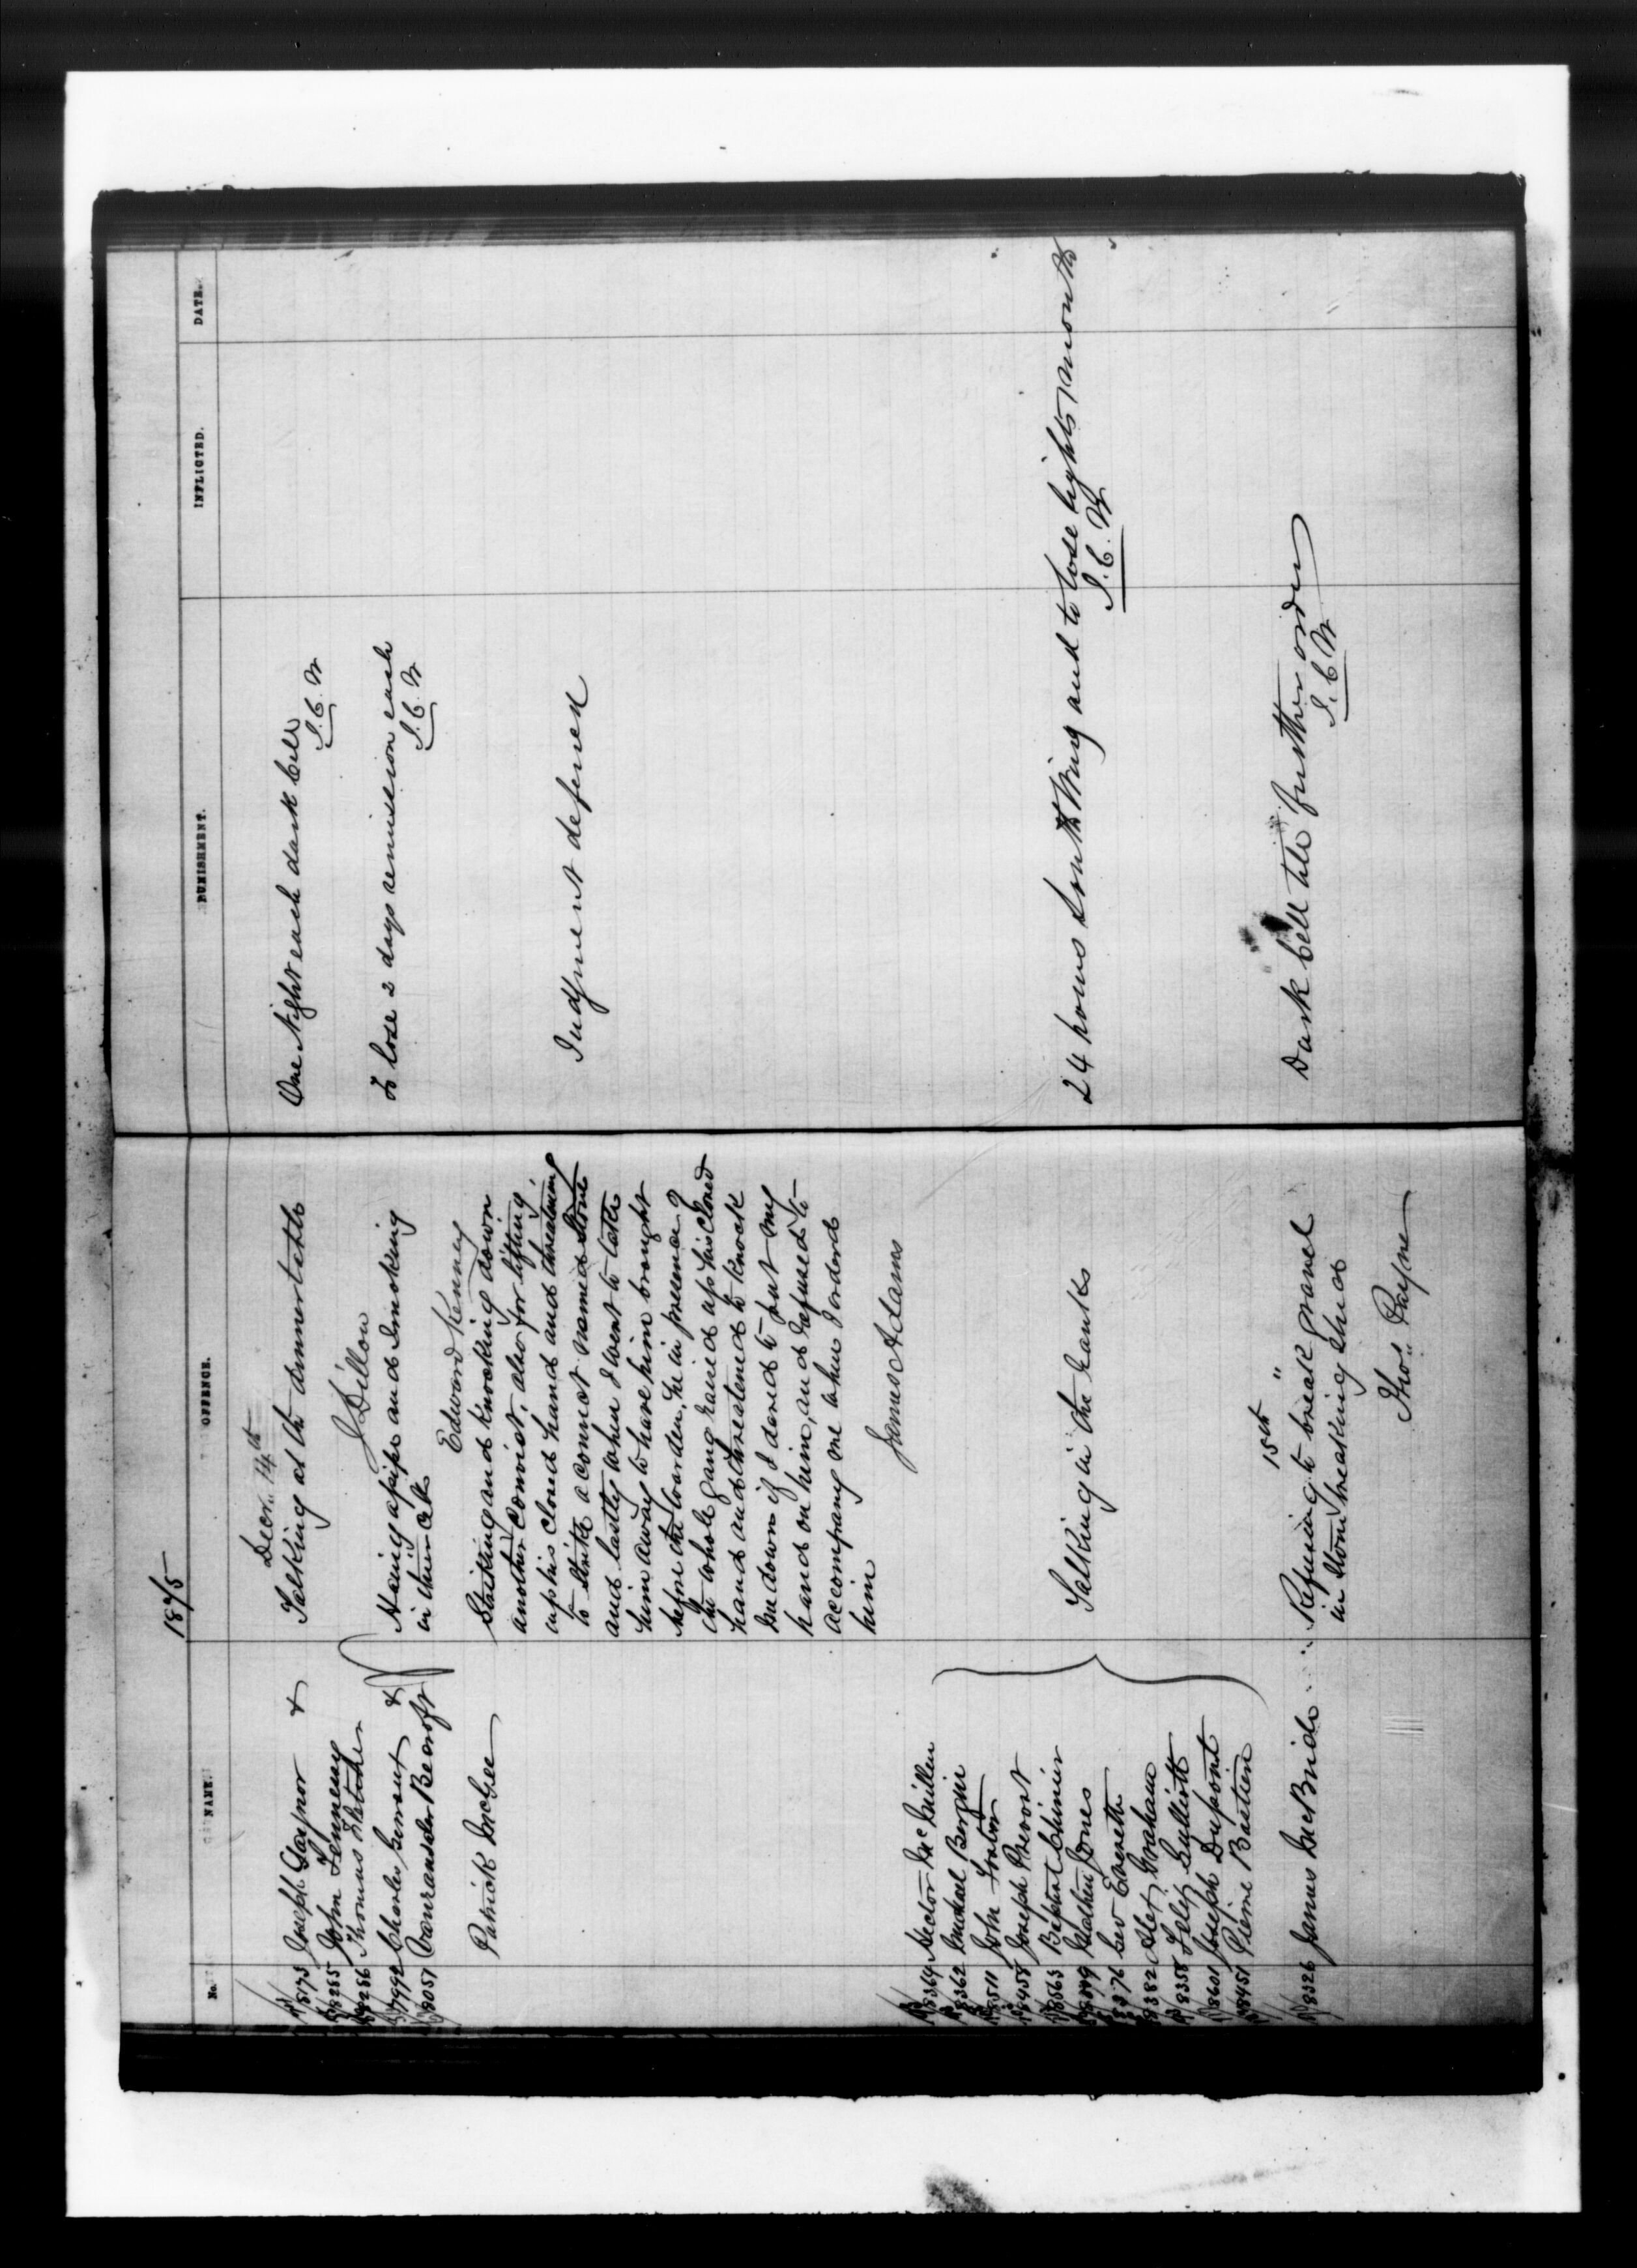 1875
No. NAME. OFFENCE. PUNISHMENT. INFLICTED. DATE.
Decr. 14th
8173 Joseph Gaynor & Talking at the dinner table One Night each dark Cell
8285 John Tennemy S.C.W
8286 Thomas Fletcher J Dillon
7992 Charles Gervent & Having a pipe and Smoking To lose 2 days remission each
8051 Becroft in their Cells S.C.W
Edward Kenney
Patrick McGee Striking and Knocking down
another Convict, also for lifting
up his closed hand and threatening Judgment deferred
to Strike a convict named Stone
and lastly when I went to take
him away to have him brought
before the Warden, he in presence of
the whole gang raised up his closed
hand and threatened to knock
me down if I dared to put my
hand on him, and refused to
accompany me when I ordered
him
James Adams
8364 Hector McMillen
8362 Michael Bergin
8511 John
8458 Joseph Prevost
8563 Baptist Chinier Talking in the ranks 24 hours South Wing and to lose lights 1 month
Jones S.C.W
8376 Geo Everette
8382 Alex Graham
8358
8601 Joseph Dupont
8451 Pierre Bastien
15th "
8326 James McBride Refusing to break gravel Dark Cell till further orders
in Stone breaking Shed S.C.W
Thos. Payne